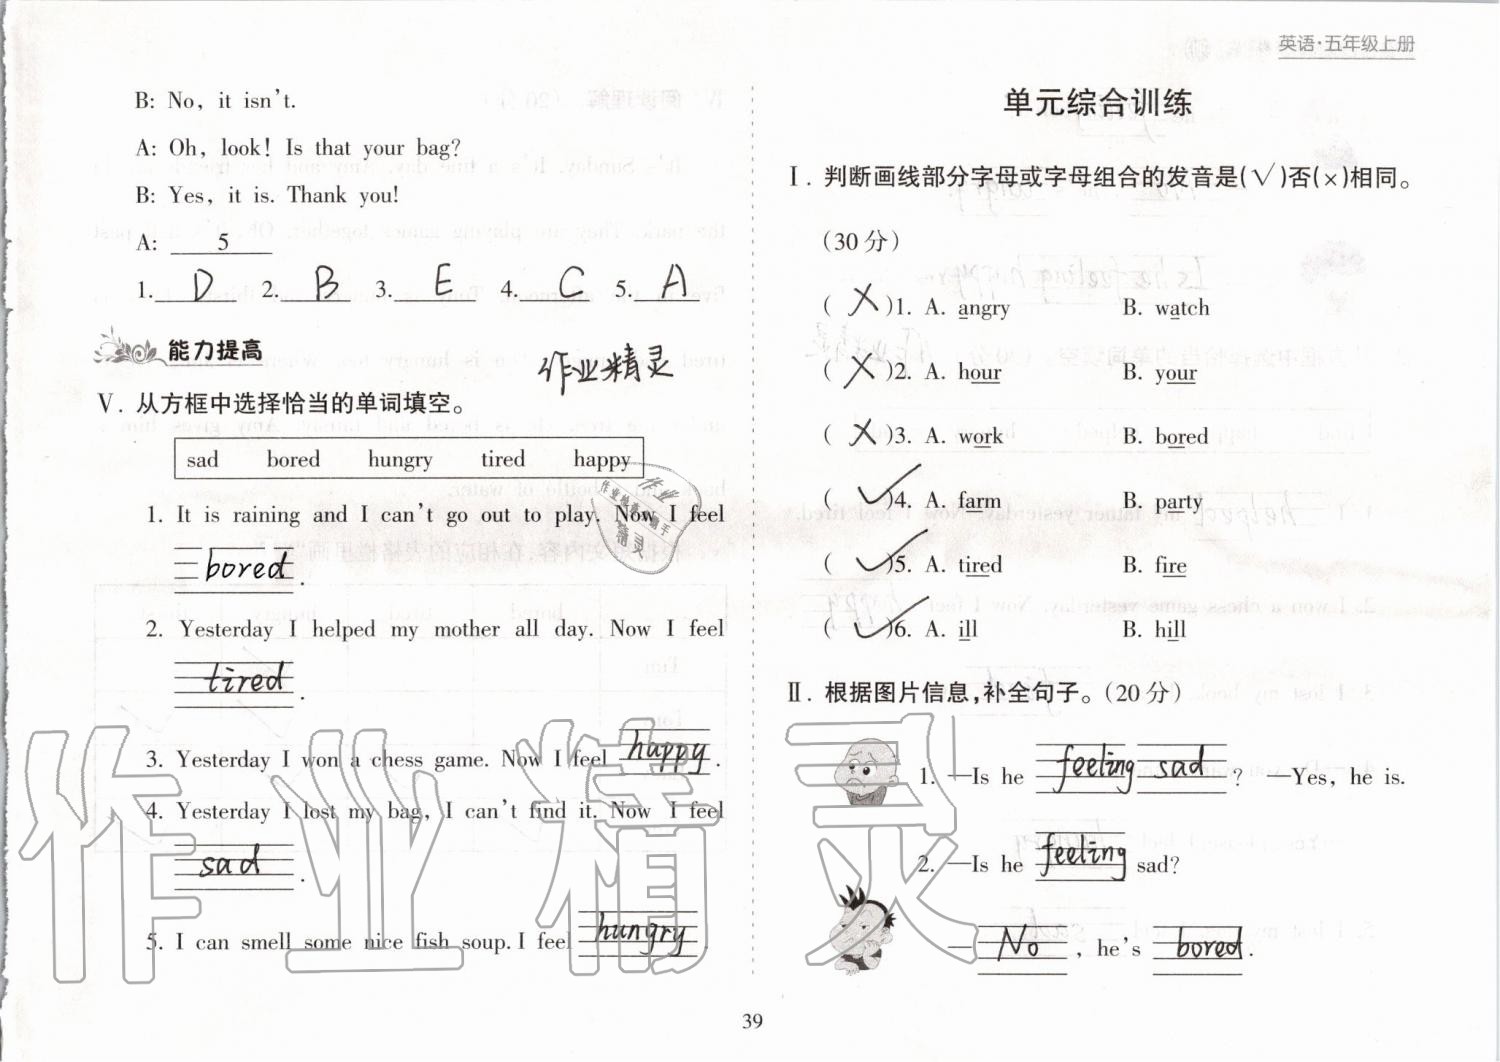 英语·五年级上册
B: No, it isn't.
A: Oh, look! Is that your bag?
B: Yes, it is. Thank you!
A: 5
1. D 2. B 3. E 4. C 5. A
能力提高
作业精灵
Ⅴ. 从方框中选择恰当的单词填空。
sad bored hungry tired happy
1. It is raining and I can't go out to play. Now I feel
bored.
2. Yesterday I helped my mother all day. Now I feel
tired.
3. Yesterday I won a chess game. Now I feel happy.
4. Yesterday I lost my bag, I can't find it. Now I feel
sad.
5. I can smell some nice fish soup. I feel hungry.
单元综合训练
Ⅰ. 判断画线部分字母或字母组合的发音是(√)否(×)相同。
(30分)
( × )1. A. angry B. watch
( × )2. A. hour B. your
( × )3. A. work B. bored
( √ )4. A. farm B. party
( √ )5. A. tired B. fire
( √ )6. A. ill B. hill
Ⅱ. 根据图片信息,补全句子。(20分)
1. —Is he feeling sad? —Yes, he is.
2. —Is he feeling sad?
— No, he's bored.
39
作业精灵